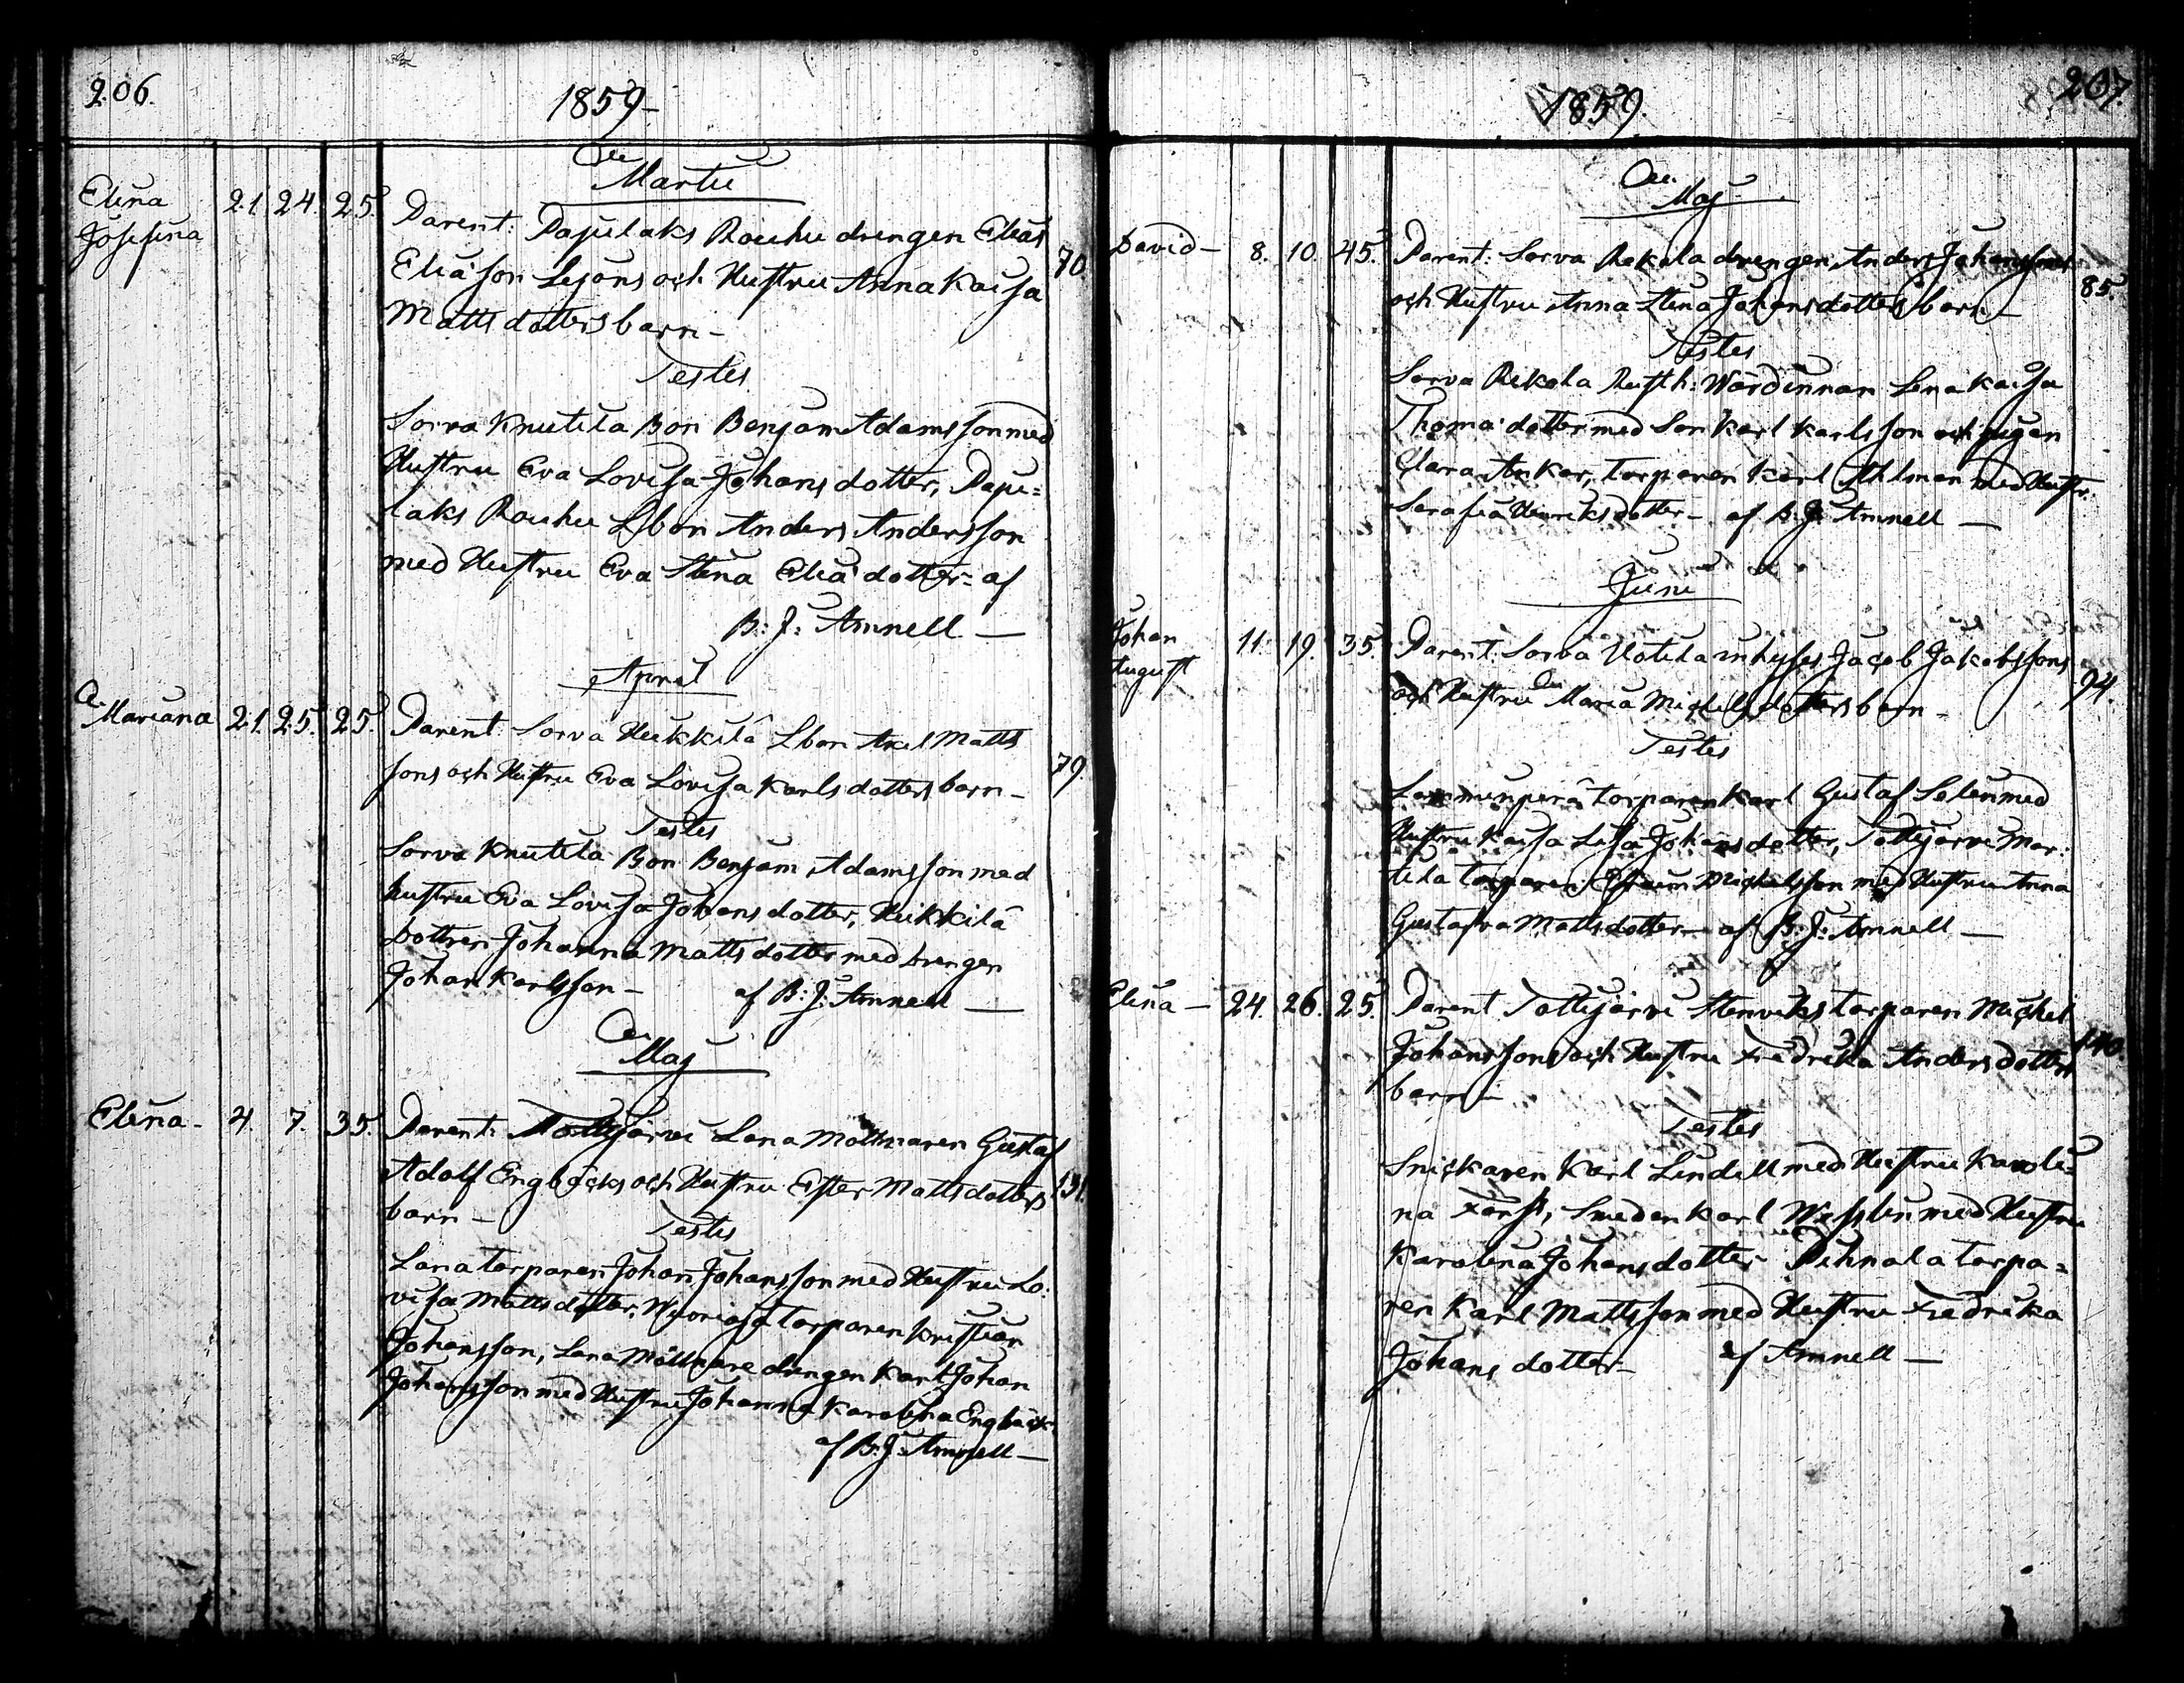 206.
1859-
Martii
Elina Josefina 21. 24. 25. Parent: Pajulaks Rouhu drengen Elias
Eliasson Lejons och Hustru Anna Kaisa 70.
Matts dotters barn-
Testes
Sorva Knutila Bon Benjam Adamsson med
Hustru Eva Lovisa Johans dotter, Paju=
laks Rouhu Lbon Anders Andersson
med Hustru Eva Stina Elia dotter- af
B: J: Amnell —
April
Mariana 21. 25. 25. Parent: Sorva Heikkilä Lbon Axel Matts
sons och Hustru Eva Lovisa Karls dotters barn- 79.
Testes
Sorva Knutila Bon Benjam Adamsson med
Hustru Eva Lovisa Johans dotter, Heikkilä
Dottren Johanna Matts dotter med drengen
Johan Karlsson- af B: J: Amnell —
Maj
Elina- 4. 7. 35. Parent: Tottijärvi Lana Möllnaren Gustaf
Adolf Engbäcks och Hustru Ester Matts dotters 131.
barn-
Testes
Lana torparen Johan Johansson med Hustru Lo:
visa Matts dotter, torparen Kristian
Johansson, Lana Möllnare drengen Karl Johan
Johansson med Hustru Johanna Karolina Engbäck.
af B: J: Amnell —
207.
1859.
Maj
David- 8. 10. 45. Parent: Sorva Rekola drengen Anders Johanssons
och Hustru Anna Stina Johans dotters barn- 85.
Testes
Sorva Rekola Rusth: Wärdinnan Lena Kaisa
Thoma dotter med Son Karl Karlsson och pigan
Clara Ankar, torparen Karl Ahlman med Hustr.
Serafia Henriks dotter- af B: J: Amnell —
Juni
Johan August 11. 19. 35. Parent: Sorva Uotila inhyses Jacob Jakobssons
och Hustru Maria Michels dotters barn- 94.
Testes
Lammenperä torparen Karl Gustaf Selin med
Hustru Kaisa Lisa Johans dotter, Tottijärvi Mar:
tila torparen Efraim Michelsson med Hustru Anna
Gustafva Matts dotter- af B: J: Amnell —
Elina- 24. 26. 25. Parent: Tottijärvi Stenviks torparen Michel
Johanssons och Hustru Fredrika Anders dotters 140.
barn-
Testes
Snickaren Karl Lindell med Hustru Karoli=
na Forss, Smeden Karl Wesslin med Hustru
Karolina Johans dotter Pihnala torpa=
ren Karl Mattsson med Hustru Fredrika
Johans dotter- af Amnell —